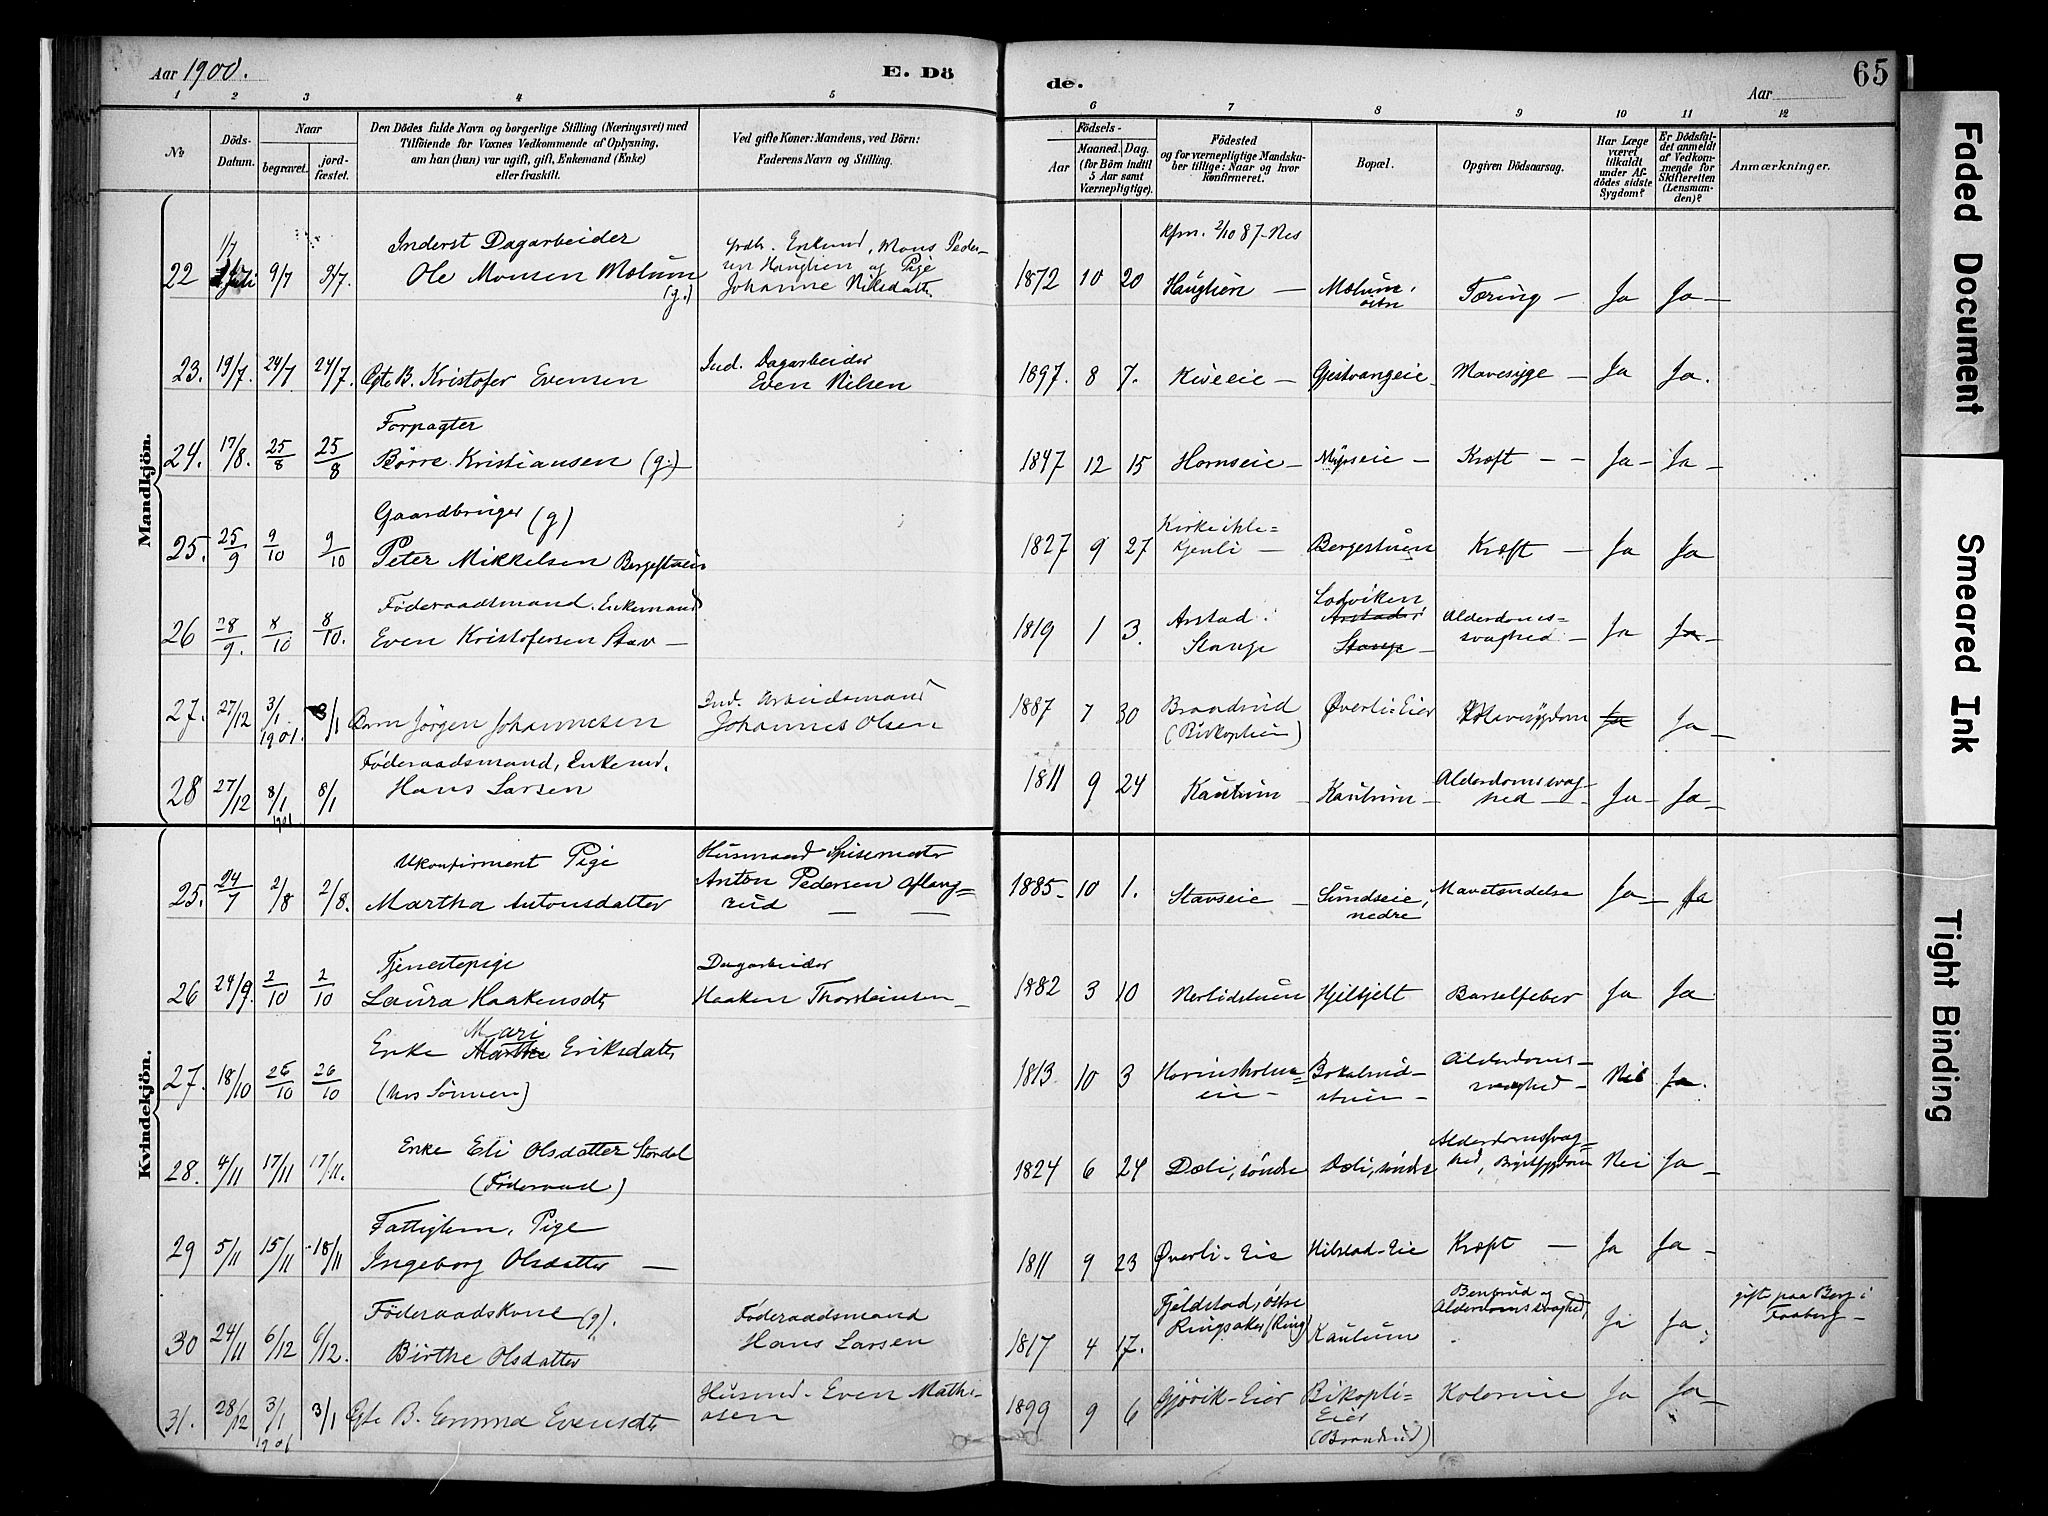 Aar 1900.
E. Dö
de.
Aar
65
1 2 3 4 5 6 7 8 9 10 11 12
No
Döds-Datum.
Naar
begravet.
jord-fæstet.
Den Dödes fulde Navn og borgerlige Stilling (Næringsvei) med
Tilföiende for Voxnes Vedkommende af Oplysning,
om han (hun) var ugift, gift, Enkemand (Enke)
eller fraskilt.
Ved gifte Koner: Mandens, ved Börn:
Faderens Navn og Stilling.
Födsels-
Aar
Maaned. Dag.
(for Börn indtil
5 Aar samt
Værnepligtige).
Födested
og for værnepligtige Mandska-
ber tillige: Naar og hvor
konfirmeret.
Bopæl.
Opgiven Dödsaarsag.
Har Læge
været
tilkaldt
under Af-
dödes sidste
Sygdom?
Er Dödsfal-
det anmeldt
af Vedkom-
mende for
Skifteretten
(Lensman-
den)?
Anmærkninger.
Mandkjön.
22 1/7 9/7 9/7. Inderst Dagarbeider
Ole Monsen Mælum (g.)
Enkemd, Mons Peder-
sen Hauglien og Pige
Johanne Nilsdatter
1872 10 20
Kfm. 2/10 87 Nes
Hauglien — Mælum, östre Tæring — Ja Ja —
23. 19/7. 24/7 24/7. Ægte B. Kristofer Evensen
Ind. Dagarbeider
Even Nilsen
1897. 8 7. Kiseeie — Gjestvangeie Mavesyge — Ja Ja.
24. 17/8. 25/8 25/8 Forpagter
Börre Kristiansen (g.) —
1847 12 15 Hornseie — Myrseie — Kræft — — Ja — Ja —
25. 25/9 9/10 9/10 Gaardbruger (g)
Peter Mikkelsen Bergestuen
1827 9 27 Kirke ikke=
kjenli — Bergestuen Kræft — Ja Ja
26 28/9. 8/10 8/10. Föderaadsmand. Enkemand
Even Kristofersen Stav —
1819 1 3. Arstad i
Stange Lodviken
Arstad i
Stange — Alderdoms=
svaghed — Ja Ja —
27. 27/12 3/1 1901. 3/1 Barn Jörgen Johannesen
Ind. Arbeidsmand
Johannes Olsen
1887 7 30 Brandrud
(Biskoplien) Øverli=Eier Mavesygdom Ja Ja —
28 27/12 8/1 1901 8/1 Föderaadsmand, Enkemd.
Hans Larsen
1811 9 24 Kautrum — Kautrum — Alderdomssvag=
hed — Ja — Ja —
Kvindekjön.
25. 24/7 2/8 2/8. Ukonfirmert Pige
Martha Antonsdatter
Husmand Spisemester
Anton Pedersen Aflang=
rud — —
1885 — 10 1. Stavseie — Sundseie, nedre Mavetændelse Ja — Ja
26 24/9. 2/10 2/10 Tjenestepige
Laura Haakensdtr
Dagarbeider
Haaken Thorsteinsen —
1882 3 10 Nerlidstuen Hjelbjelt Barselfeber Ja Ja
27. 18/10 26/10 26/10 Mari
Enke Marthe Eriksdatter
(hos Sönnen)
1813 10 3 Hovinsholm=
eie — Bokalrud-
stuen — Alderdoms=
svaghed — Nei Ja.
28. 4/11 17/11 17/11. Enke Eli Olsdatter Stordel
(Föderaad)
1824 6 24 Dæli, söndre Dæli, söndre Alderdomssvag=
hed, Nei Ja —
29 5/11 15/11 18/11 Fattiglem, Pige
Ingeborg Olsdatter —
1811 9 23 Øverli-Eie Hilstad-Eie Kræft — Ja Ja —
30 24/11 6/12 6/12. Föderaadskone (g).
Birthe Olsdatter
Föderaadsmand
Hans Larsen
1817 4 17. Fjeldstad, östre
Ringsaker (Ring) Kautrum Benbrud og
Alderdomssvaghed, Ja Ja,
gift paa Berg i
Faaberg —
31. 28/12 3/1 1901 3/1 Ægte B. Emma Evensdtr
Husmd. Even Mathi-
asen
1899 9 6 Gjövik-Eier Bikopli=
Eier
(Brandrud) Kolerine Ja Ja —
Faded Document
Smeared Ink
Tight Binding